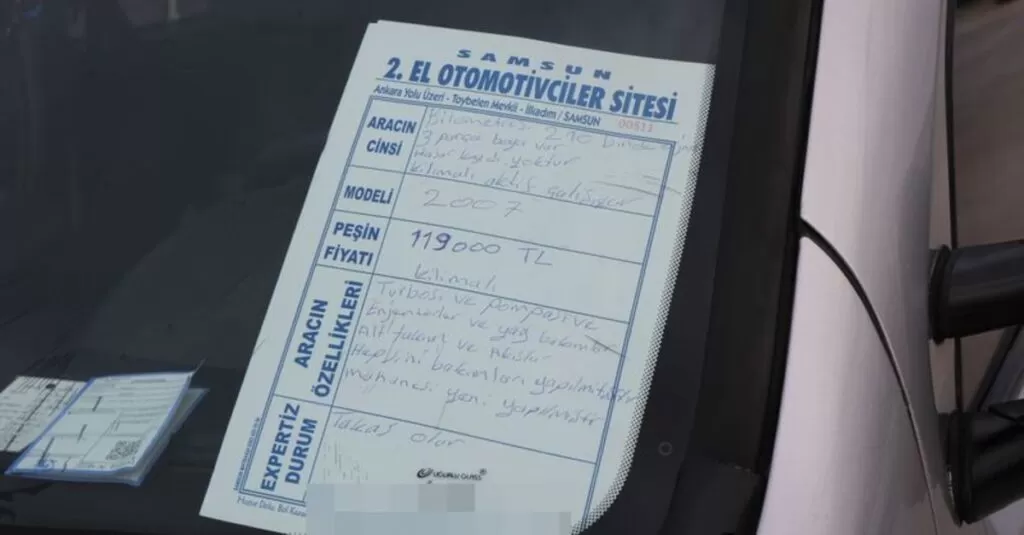 SAMSUN
2. EL OTOMOTİVCİLER SİTESİ
Ankara Yolu Üzeri - Toybelen Mevkii - İlkadım / SAMSUN
00511
ARACIN CİNSİ
Kilometresi 210 binde
3 parça boya var
Hasar kaydı yoktur
Klimalı aktif çalışıyor
MODELİ
2007
PEŞİN FİYATI
119000 TL
klimalı
ARACIN ÖZELLİKLERİ
Turbosu ve pompası ve
Enjenktörler ve yağ bakımları
Alt takım ve
Hepsini bakımları yapılmıştır
yeni yapılmıştır
EXPERTİZ DURUM
Takas olur
UĞURLU GLASS